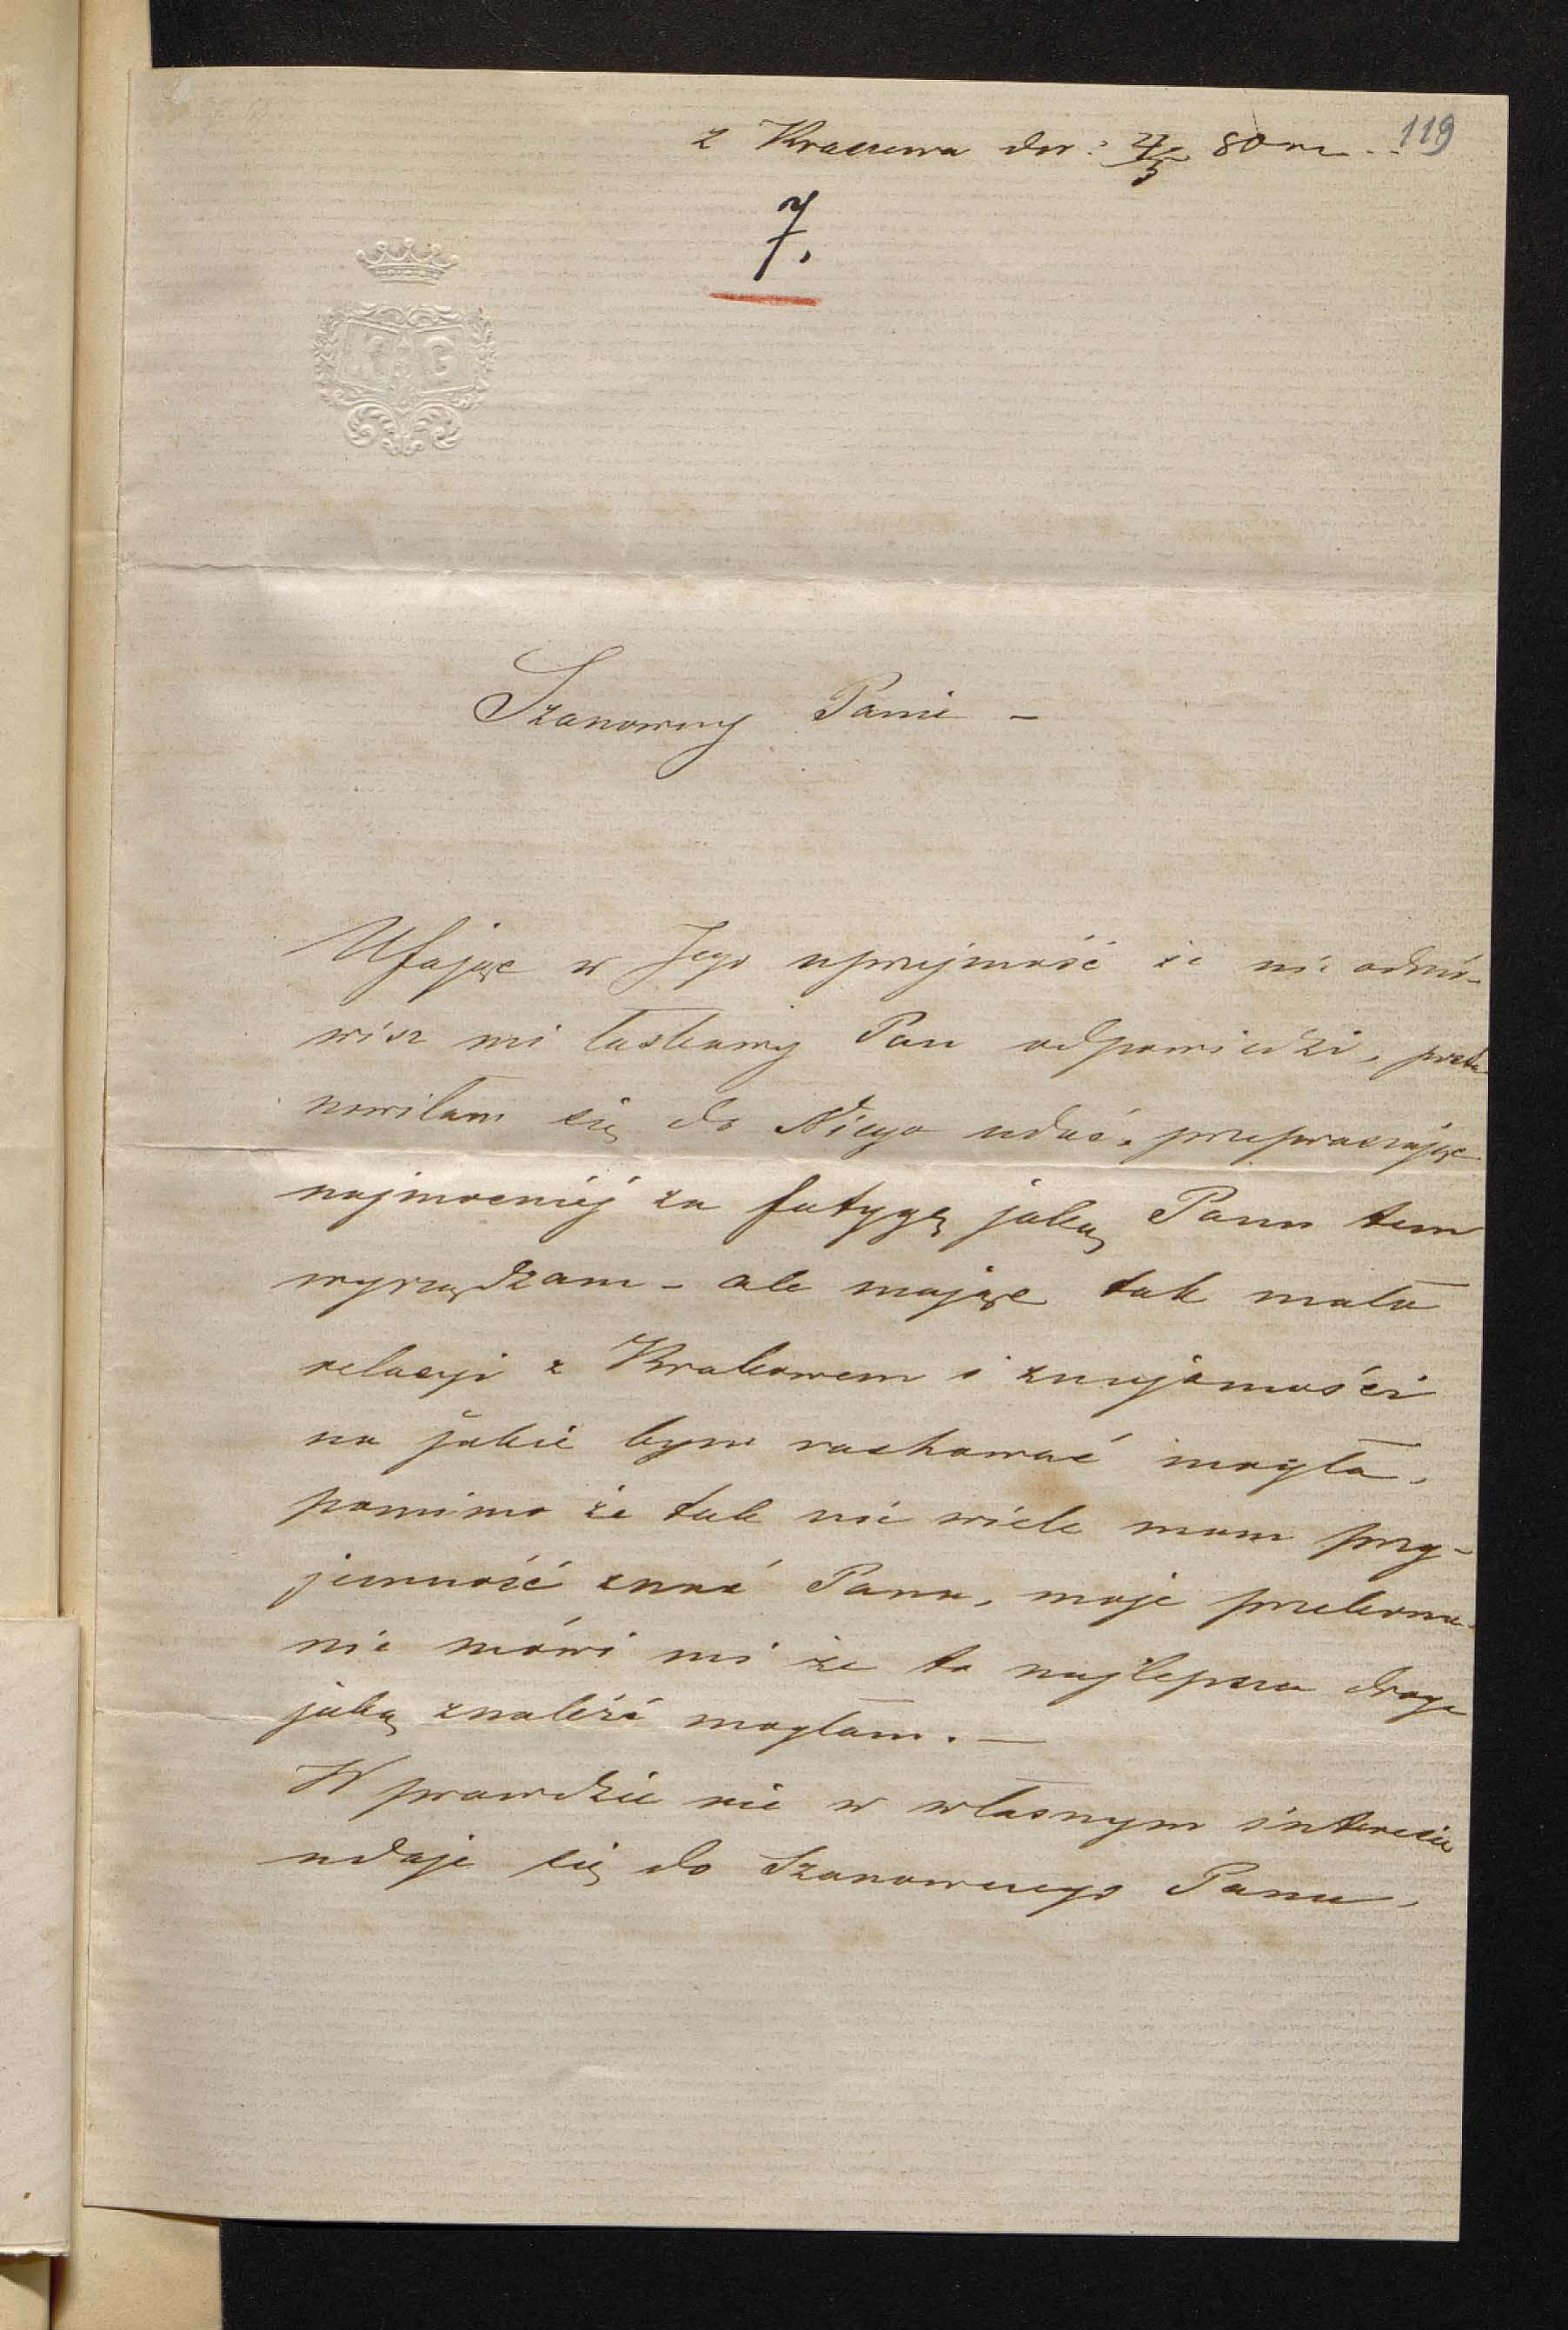 119
z Kraszewa dn: 4/5 80 r.
7.
Szanowny Panie –
Ufając w Jego uprzejmość że nie odmó-
wisz mi łaskawy Pan odpowiedzi, posta-
nowiłam się do Niego udać, przepraszając
najmocniéj za fatygę jaką Panu tem
wyrządzam – ale mając tak mało
relacyi z Krakowem i znajomości
na jakie bym rachować mogła,
pomimo że tak nie wiele mam przy-
jemność znać Pana, moje przekona-
nie mówi mi że to najlepsza droga
jaką znaléźć mogłam. –
W prawdzie nie w własnym interesie
udaje się do Szanownego Pana,